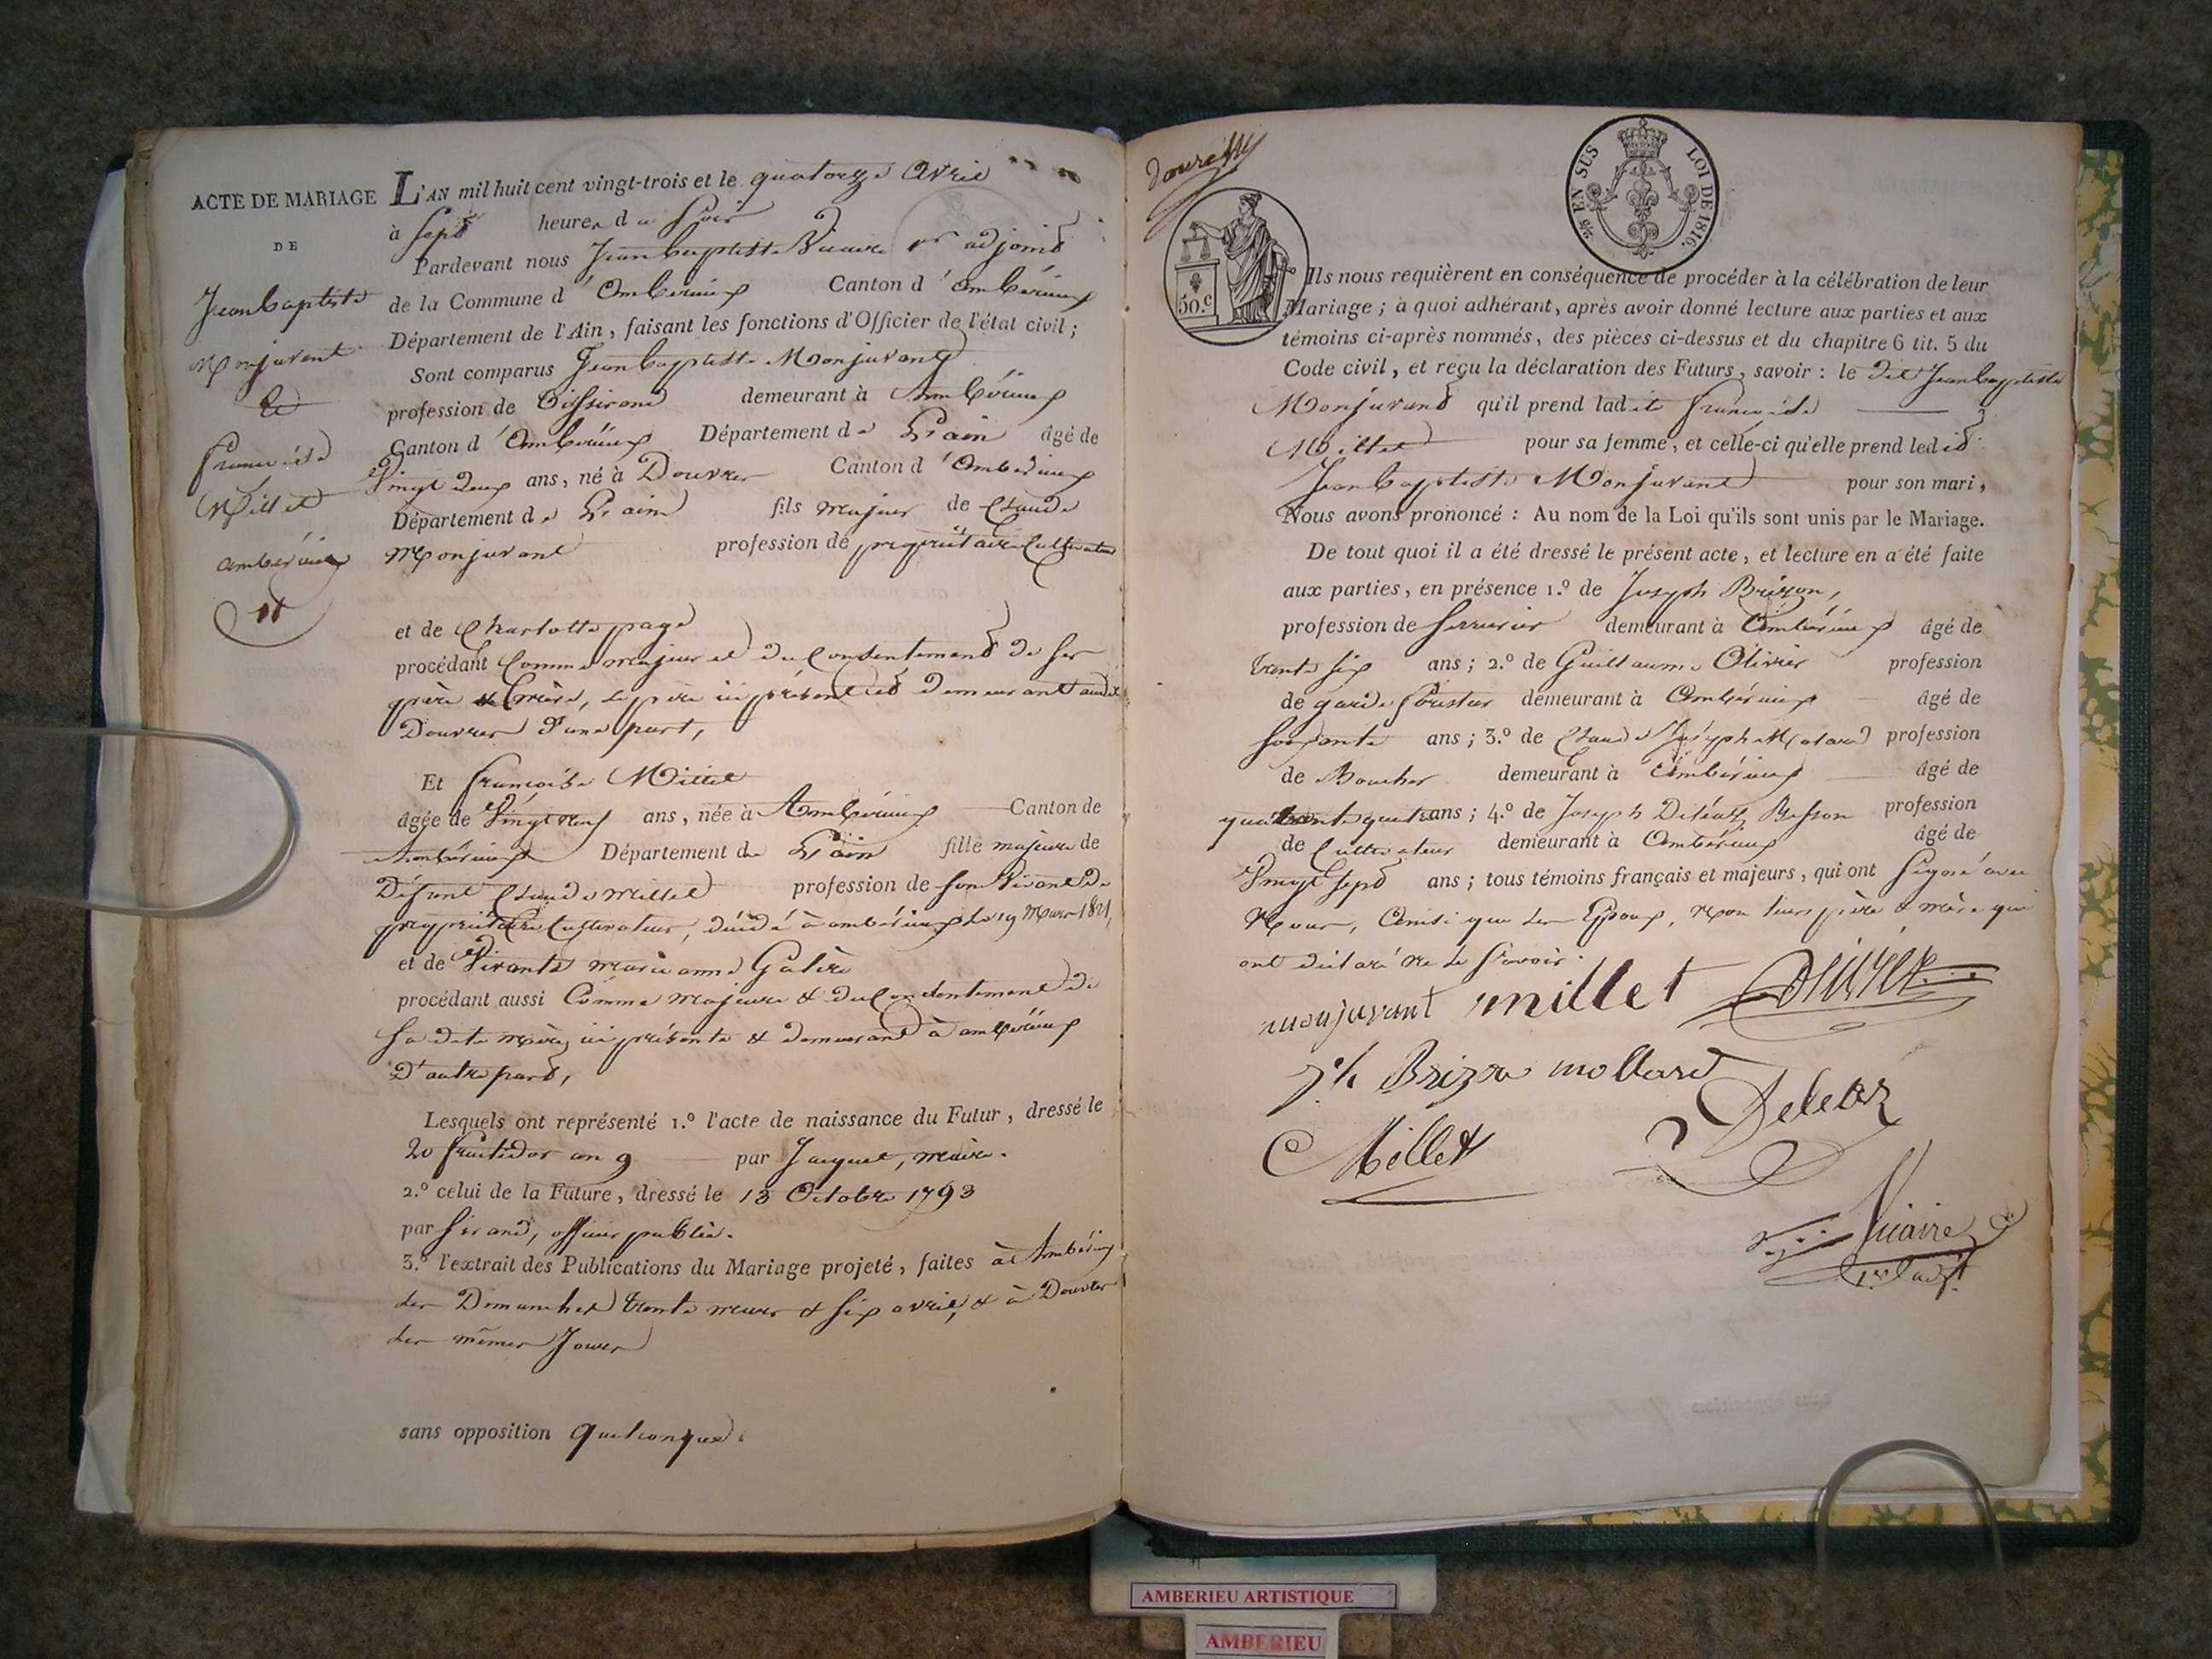 ACTE DE MARIAGE
DE
Jeanbaptiste
Monjuvent
et
francoise
Millet
ambérieux
11
L'AN mil huit cent vingt-trois et le quatorze avril
à sept heures du soir
Pardevant nous Jeanbaptiste Vicaire 1er adjoint
de la Commune d'ambérieux Canton d'ambérieux
Département de l'Ain, faisant les fonctions d'Officier de l'état civil;
Sont comparus Jeanbaptiste Monjuvant
profession de tisserand demeurant à Ambérieux
Canton d'ambérieux Département de L'ain âgé de
Vingt deux ans, né à Douvres Canton d'ambérieux
Département de L'ain fils majeur de Claude
Monjuvant profession de propriétaire Cultivateur
et de Charlotte page
procédant Comme majeur et du Consentement de ses
père & mère, le père ici présent et demeurant audit
Douvres d'une part,
Et francoise Millet
âgée de Vingt neuf ans, née à Ambérieux Canton de
ambérieux Département de L'ain fille majeure de
Défunt Claude Millet profession de son vivant de
propriétaire Cultivateur, décédé à ambérieux Le 19 Mars 1821,
et de Vivante marianne Galère
procédant aussi Comme majeure & du Consentement de
sa dite mère, ici présente & demeurant à ambérieux
D'autre part,
Lesquels ont représenté 1.º l'acte de naissance du Futur, dressé le
20 fructidor an 9 par Jacquet, maire.
2.º celui de la Future, dressé le 13 Octobre 1793
par sirand, officier public.
3.º l'extrait des Publications du Mariage projeté, faites à Ambérieux
les Dimanches trente mars & six avril, & à Douvres
les mêmes Jours
sans opposition quelconque.
50.c
25 EN SUS LOI DE 1816.
Ils nous requièrent en conséquence de procéder à la célébration de leur
Mariage; à quoi adhérant, après avoir donné lecture aux parties et aux
témoins ci-après nommés, des pièces ci-dessus et du chapitre 6 tit. 5 du
Code civil, et reçu la déclaration des Futurs, savoir : le dit Jeanbaptiste
Monjuvant qu'il prend ladite francoise
Millet pour sa femme, et celle-ci qu'elle prend ledit
Jeanbaptiste Monjuvant pour son mari,
Nous avons prononcé : Au nom de la Loi qu'ils sont unis par le Mariage.
De tout quoi il a été dressé le présent acte, et lecture en a été faite
aux parties, en présence 1.º de Joseph Brizon,
profession de serrurier demeurant à Ambérieux âgé de
trente six ans; 2.º de Guillaume Olivier profession
de garde forestier demeurant à Ambérieux âgé de
soixante ans; 3.º de Claude Joseph Molard profession
de Boucher demeurant à Ambérieux âgé de
quarante quatre ans; 4.º de Joseph Deléaz Besson profession
de Cultivateur demeurant à Ambérieux âgé de
Vingt sept ans; tous témoins français et majeurs, qui ont signé avec
Nous, ainsi que les Epoux, non leurs père & mère qui
ont déclaré ne le savoir.
monjuvant millet Olivier
Jh Brizon mollard
C Millet Deleaz
Vicaire
1er adjt
AMBERIEU ARTISTIQUE
AMBERIEU